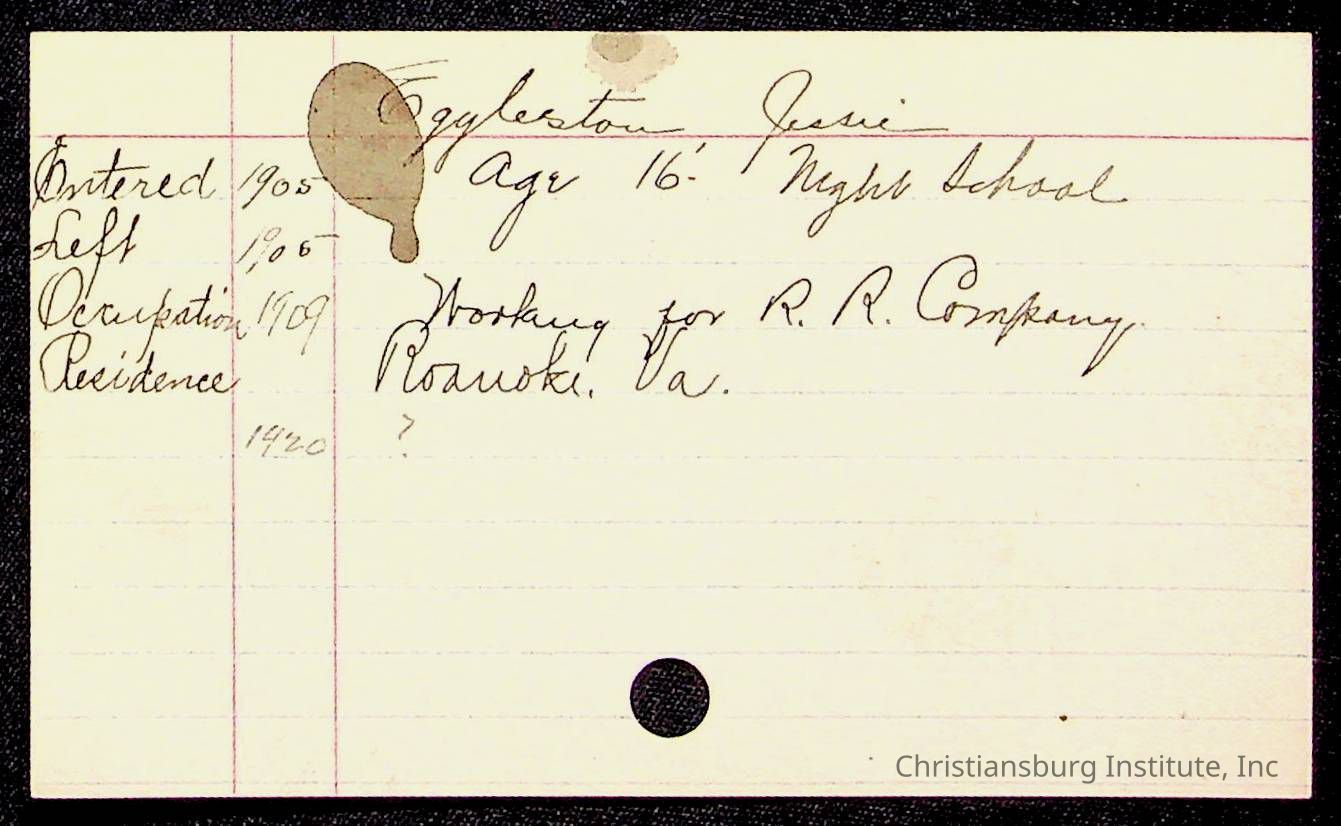 Eggleston Jessie
Entered 1905 Age 16- Night School
Left 1905
Occupation 1909 Working for R. R. Company.
Residence Roanoke. Va.
1920 ?
Christiansburg Institute, Inc